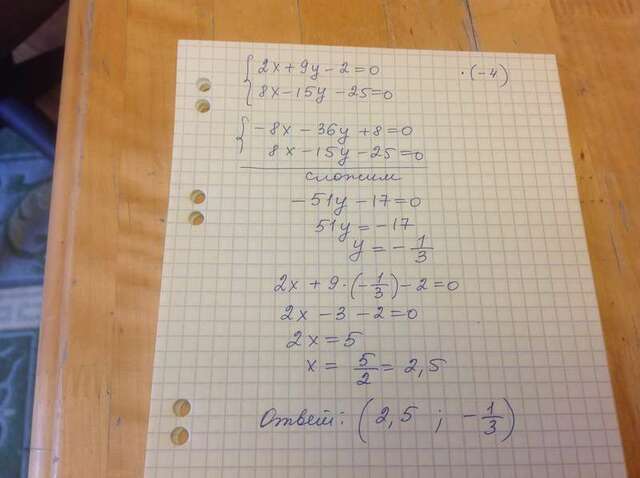 2x + 9y - 2 = 0 · (-4)
8x - 15y - 25 = 0
-8x - 36y + 8 = 0
8x - 15y - 25 = 0
сложим
-51y - 17 = 0
51y = -17
y = - 1/3
2x + 9 · (- 1/3) - 2 = 0
2x - 3 - 2 = 0
2x = 5
x = 5/2 = 2,5
Ответ: (2,5 ; - 1/3)